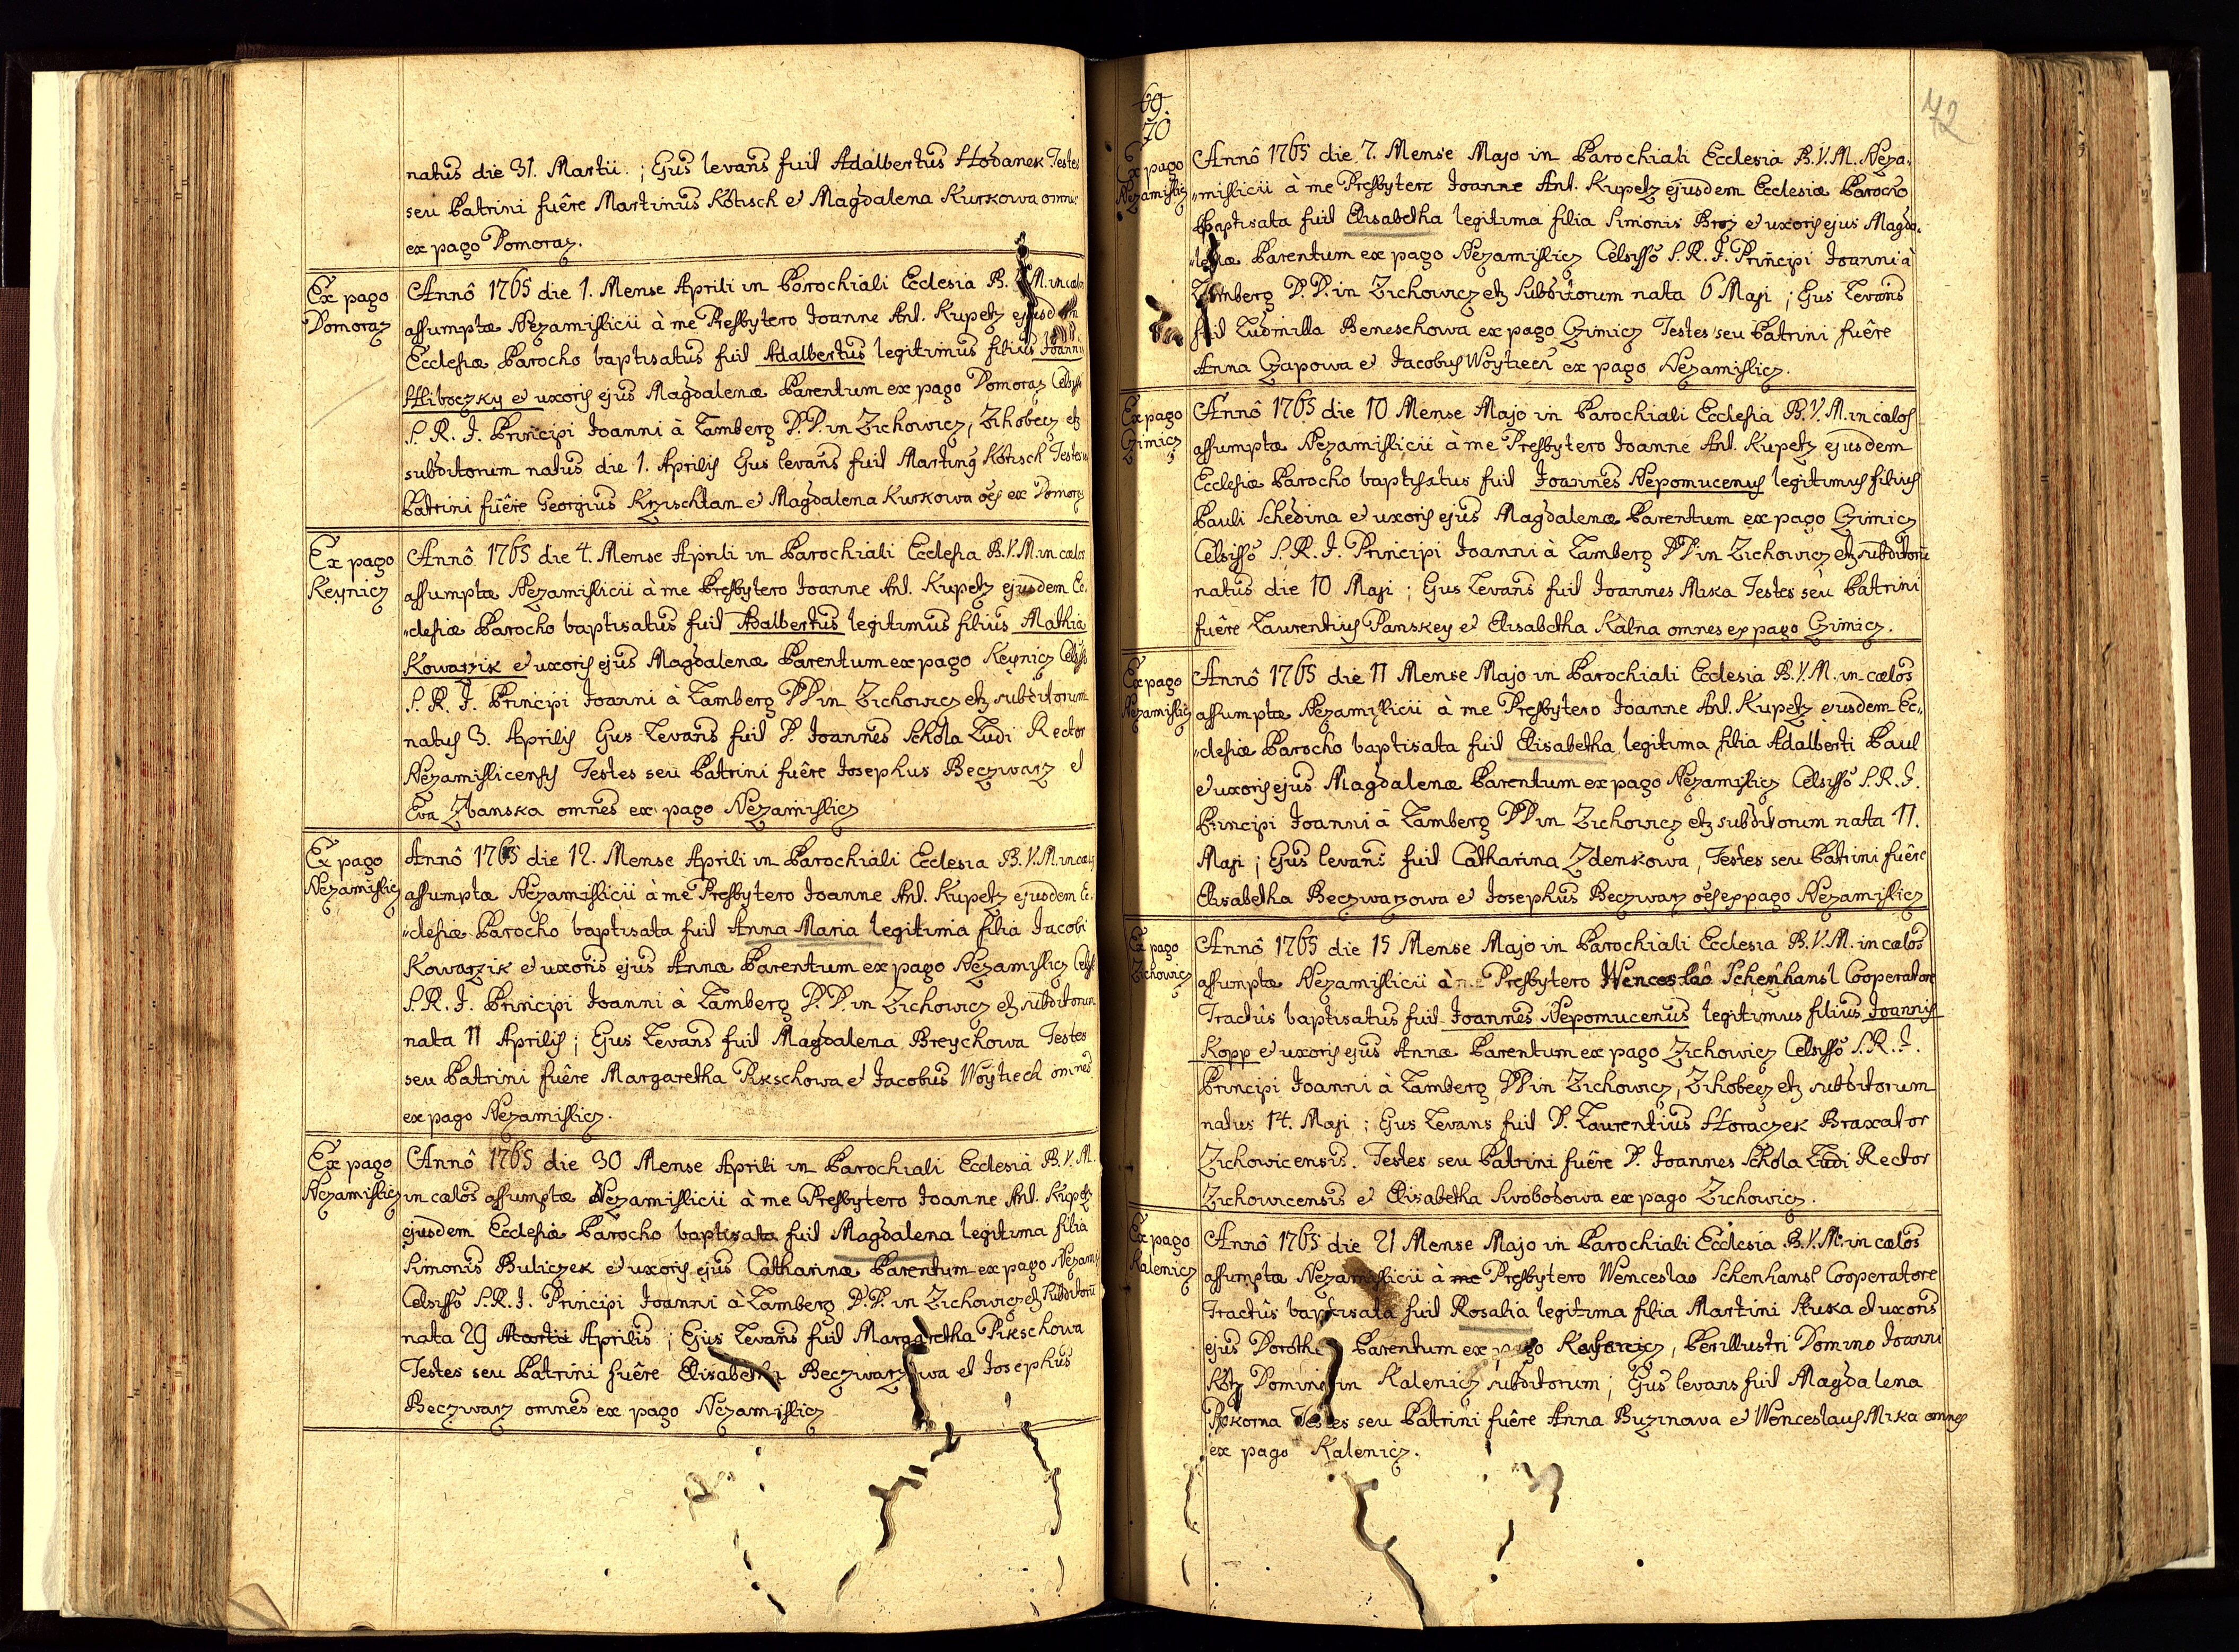 natus die 31. Martii. ; Ejus levans fuit Adalbertus Hodanek Testes
seu Patrini fuêre Martinus Kotisch et Magdalena Kurkowa omnes
ex pago Domoraz.
Ex pago
Domoraz
Annô 1765 die 1. Mense Aprili in Parochiali Ecclesia B. V. M. in cælos
assumptæ Nezamislicii à me Presbytero Joanne Ant. Kupetz ejusdem
Ecclesiæ Parocho baptisatus fuit Adalbertus legitimus filius Joannis
Hliboczky et uxoris ejus Magdalenæ Parentum ex pago Domoraz Celsisso
S. R. I. Principi Joanni à Lamberg D. D. in Zichowicz, Zihobecz etz
subditorum natus die 1. Aprilis Ejus levans fuit Martinus Kotisch Testes
Patrini fuêre Georgius Krzischtan et Magdalena Kurkowa oes ex Domoraz
Ex pago
Keynicz
Annô 1765 die 4. Mense Aprili in Parochiali Ecclesia B. V. M. in cælos
assumptæ Nezamislicii à me Presbytero Joanne Ant. Kupetz ejusdem Ec„
„clesiæ Parocho baptisatus fuit Adalbertus legitimus filius Mathiæ
Kowarzik et uxoris ejus Magdalenæ Parentum ex pago Keynicz Celsisso
S. R. I. Principi Joanni à Lamberg DD in Zichowicz etz subditorum
natus 3. Aprilis Ejus Levans fuit D. Joannes Schola Ludi Rector
Nezamislicensis Testes seu Patrini fuêre Josephus Beczwarz et
Eva Zbanska omnes ex pago Nezamislicz
Ex pago
Nezamislicz
Annô 1765 die 12. Mense Aprili in Parochiali Ecclesia B. V. M. in cælos
assumptæ Nezamislicii à me Presbytero Joanne Ant. Kupetz ejusdem Ec„
„clesiæ Parocho baptisata fuit Anna Maria legitima filia Jacobi
Kowarzik et uxoris ejus Annæ Parentum ex pago Nezamislicz Celsisso
S. R. I. Principi Joanni à Lamberg D. D. in Zichowicz etz subditorum
nata 11 Aprilis ; Ejus Levans fuit Magdalena Breychowa Testes
seu Patrini fuêre Margaretha Pikschowa et Jacobus Woytiech omnes
ex pago Nezamislicz.
Ex pago
Nezamislicz
Annô 1765 die 30 Mense Aprili in Parochiali Ecclesia B. V. M.
in cælos assumptæ Nezamislicii à me Presbytero Joanne Ant. Kupetz
ejusdem Ecclesiæ Parocho baptisata fuit Magdalena legitima filia
Simonis Buliczek et uxoris ejus Catharinæ Parentum ex pago Nezami
Celsisso S. R. I. Principi Joanni à Lamberg D. D. in Zichowicz etz Subditorū
nata 29 Martii Aprilis ; Ejus Levans fuit Margaretha Pikschowa
Testes seu Patrini fuêre Elisabetha Beczwarzowa et Josephus
Beczwarz omnes ex pago Nezamislicz
69.
70
72
Ex pago
Nezamislicz
Annô 1765 die 7. Mense Majo in Parochiali Ecclesia B. V. M. Neza„
„mislicii à me Presbytero Joanne Ant. Kupetz ejusdem Ecclesiæ Parocho
Baptisata fuit Elisabetha legitima filia Simonis Broz et uxoris ejus Magda„
„lenæ Parentum ex pago Nezamislicz Celsisso S. R. I. Principi Joanni à
Lamberg D. D. in Zichowicz etz Subditorum nata 6 Maji ; Ejus Levans
fuit Ludmilla Beneschowa ex pago Czimicz Testes seu Patrini fuêre
Anna Czapowa et Jacobus Woytiech ex pago Nezamislicz.
Ex pago
Czimicz
Annô 1765 die 10 Mense Majo in Parochiali Ecclesia B. V. M. in cælos
assumptæ Nezamislicii à me Presbytero Joanne Ant. Kupetz ejusdem
Ecclesiæ Parocho baptisatus fuit Joannes Nepomucenus legitimus filius
Pauli Schedina et uxoris ejus Magdalenæ Parentum ex pago Czimicz
Celsisso S. R. I. Principi Joanni à Lamberg DD in Zichowicz etz subditorū
natus die 10 Maji ; Ejus Levans fuit Joannes Mika Testes seu Patrini
fuêre Laurentius Panskey et Elisabetha Kalna omnes ex pago Czimicz.
Ex pago
Nezamislicz
Annô 1765 die 11 Mense Majo in Parochiali Ecclesia B. V. M. in cælos
assumptæ Nezamislicii à me Presbytero Joanne Ant. Kupetz ejusdem Ec„
„clesiæ Parocho baptisata fuit Elisabetha legitima filia Adalberti Paul
et uxoris ejus Magdalenæ Parentum ex pago Nezamislicz Celsisso S. R. I.
Principi Joanni à Lamberg DD in Zichowicz etz subditorum nata 11.
Maji ; Ejus levans fuit Catharina Zdenkowa, Testes seu Patrini fuêre
Elisabetha Beczwarzowa et Josephus Beczwarz oes ex pago Nezamislicz
Ex pago
Zichowicz
Annô 1765 die 15 Mense Majo in Parochiali Ecclesia B. V. M. in cælos
assumptæ Nezamislicii à me Presbytero Wenceslao Schenhansl Cooperatore
Tractûs baptisatus fuit Joannes Nepomucenus legitimus filius Joannis
Kopp et uxoris ejus Annæ Parentum ex pago Zichowicz Celsisso S. R. I.
Principi Joanni à Lamberg DD in Zichowicz, Zihobecz etz subditorum
natus 14. Maji ; Ejus Levans fuit D. Laurentius Horaczek Braxator
Zichowicensis. Testes seu Patrini fuêre D. Joannes Schola Ludi Rector
Zichowicensis et Elisabetha Svobodowa ex pago Zichowicz.
Ex pago
Kalenicz
Annô 1765 die 21 Mense Majo in Parochiali Ecclesia B. V. M. in cælos
assumptæ Nezamislicii à me Presbytero Wenceslao Schenhansl Cooperatore
Tractûs baptisata fuit Rosalia legitima filia Martini Stuka et uxoris
ejus Dorotheæ Parentum ex pago, Perillustri Domino Joanni
Kotz Domino in Kalenicz subditorum ; Ejus levans fuit Magdalena
Pokorna Testes seu Patrini fuêre Anna Buzinava et Wenceslaus Mika omnes
ex pago Kalenicz.